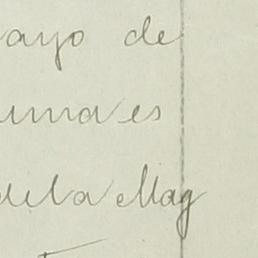 ayo de
uma es
de la Mag